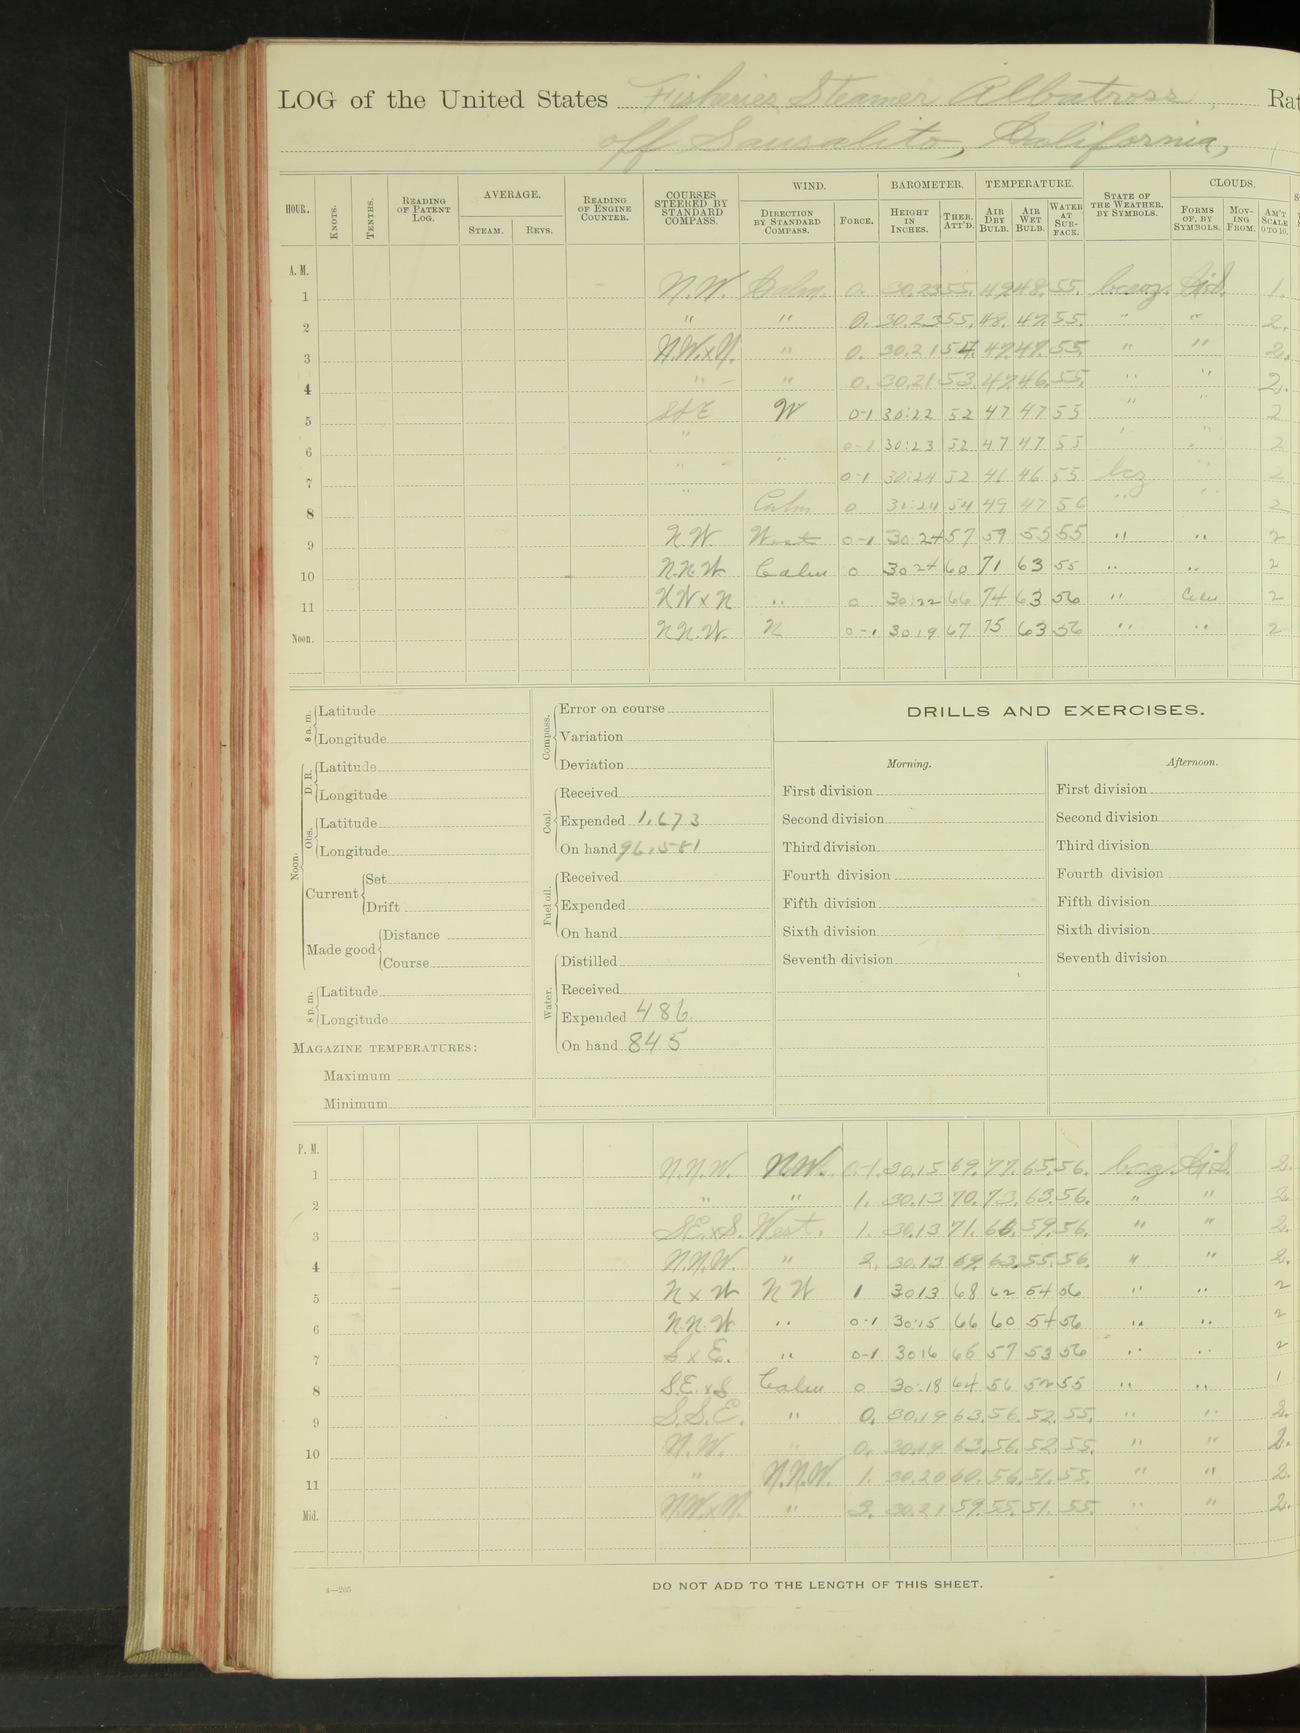 LOG of the United States Fisheries Steamer Albatross, Rat
off Sausalito, California,
HOUR. KNOTS. TENTHS. READING OF PATENT LOG. AVERAGE. STEAM. REVS. READING OF ENGINE COUNTER. COURSES STEERED BY STANDARD COMPASS. WIND. DIRECTION BY STANDARD COMPASS. FORCE. BAROMETER. HEIGHT IN INCHES. THER. ATT'D. TEMPERATURE. AIR DRY BULB. AIR WET BULB. WATER AT SURFACE. STATE OF THE WEATHER, BY SYMBOLS. CLOUDS. FORMS OF, BY SYMBOLS. MOVING FROM. AM'T SCALE 0 TO 10.
A. M.
1 N.W. Calm. 0. 30.23 55. 49. 48. 55. Ci.S. 1.
2 " " 0. 30.23 55. 48. 47. 55. " " 2.
3 N.W.xN. " 0. 30.21 54. 47. 47. 55. " " 2.
4 " " 0. 30.21 53. 47. 46. 55. " " 2.
5 SSE W 0-1 30:22 52 47 47 55 " " 2
6 " 0-1 30:23 52 47 47 55 " " 2
7 " " 0-1 30:24 52 46 46 55 bcz " 2
8 " Calm 0 30:24 54 49 47 56 " " 2
9 N W. West 0-1 30:24 57 59 55 55 " " 2
10 N.N.W. Calm 0 30 24 60 71 63 55 " " 2
11 N W x N " 0 30:22 66 74 63 56 " 2
Noon. N N. W. N 0-1 30 19 67 75 63 56 " " 2
8 a. m. Latitude
Longitude
Noon. D. R. Latitude
Longitude
Obs. Latitude
Longitude
Current Set
Drift
Made good Distance
Course
8 p. m. Latitude
Longitude
MAGAZINE TEMPERATURES:
Maximum
Minimum
Compass. Error on course
Variation
Deviation
Coal. Received
Expended 1,673
On hand 96,581
Fuel oil. Received
Expended
On hand
Water. Distilled
Received
Expended 486.
On hand 845
DRILLS AND EXERCISES.
Morning. Afternoon.
First division First division
Second division Second division
Third division Third division
Fourth division Fourth division
Fifth division Fifth division
Sixth division Sixth division
Seventh division Seventh division
P. M.
1 N.N.W. N.W. 0-1. 30.15 69. 77. 65. 56. bcz. Ci.S. 2.
2 " " 1. 30.13 70. 73. 63. 56. " " 2.
3 SE.xS. West. 1. 30.13 71. 66. 59. 56. " " 2.
4 N.N.W. " 2. 30.13 69. 63. 55. 56. " " 2.
5 N x W N W 1 30 13 68 62 54 56 " " 2
6 N.N.W " 0-1 30:15 66 60 54 56 " " 2
7 S x E. " 0-1 30 16 65 57 53 56 " " 2
8 S.E.xS Calm 0 30:18 64 56 52 55 " " 1
9 S.S.E. " 0. 30.19 63. 56. 52. 55. " " 2.
10 N.W. " 0. 30.19 63. 56. 52. 55. " " 2.
11 " N.N.W. 1. 30.20 60. 56. 51. 55. " " 2.
Mid. N.W.xN. " 3. 30.21 59. 55. 51. 55. " " 2.
4—205
DO NOT ADD TO THE LENGTH OF THIS SHEET.